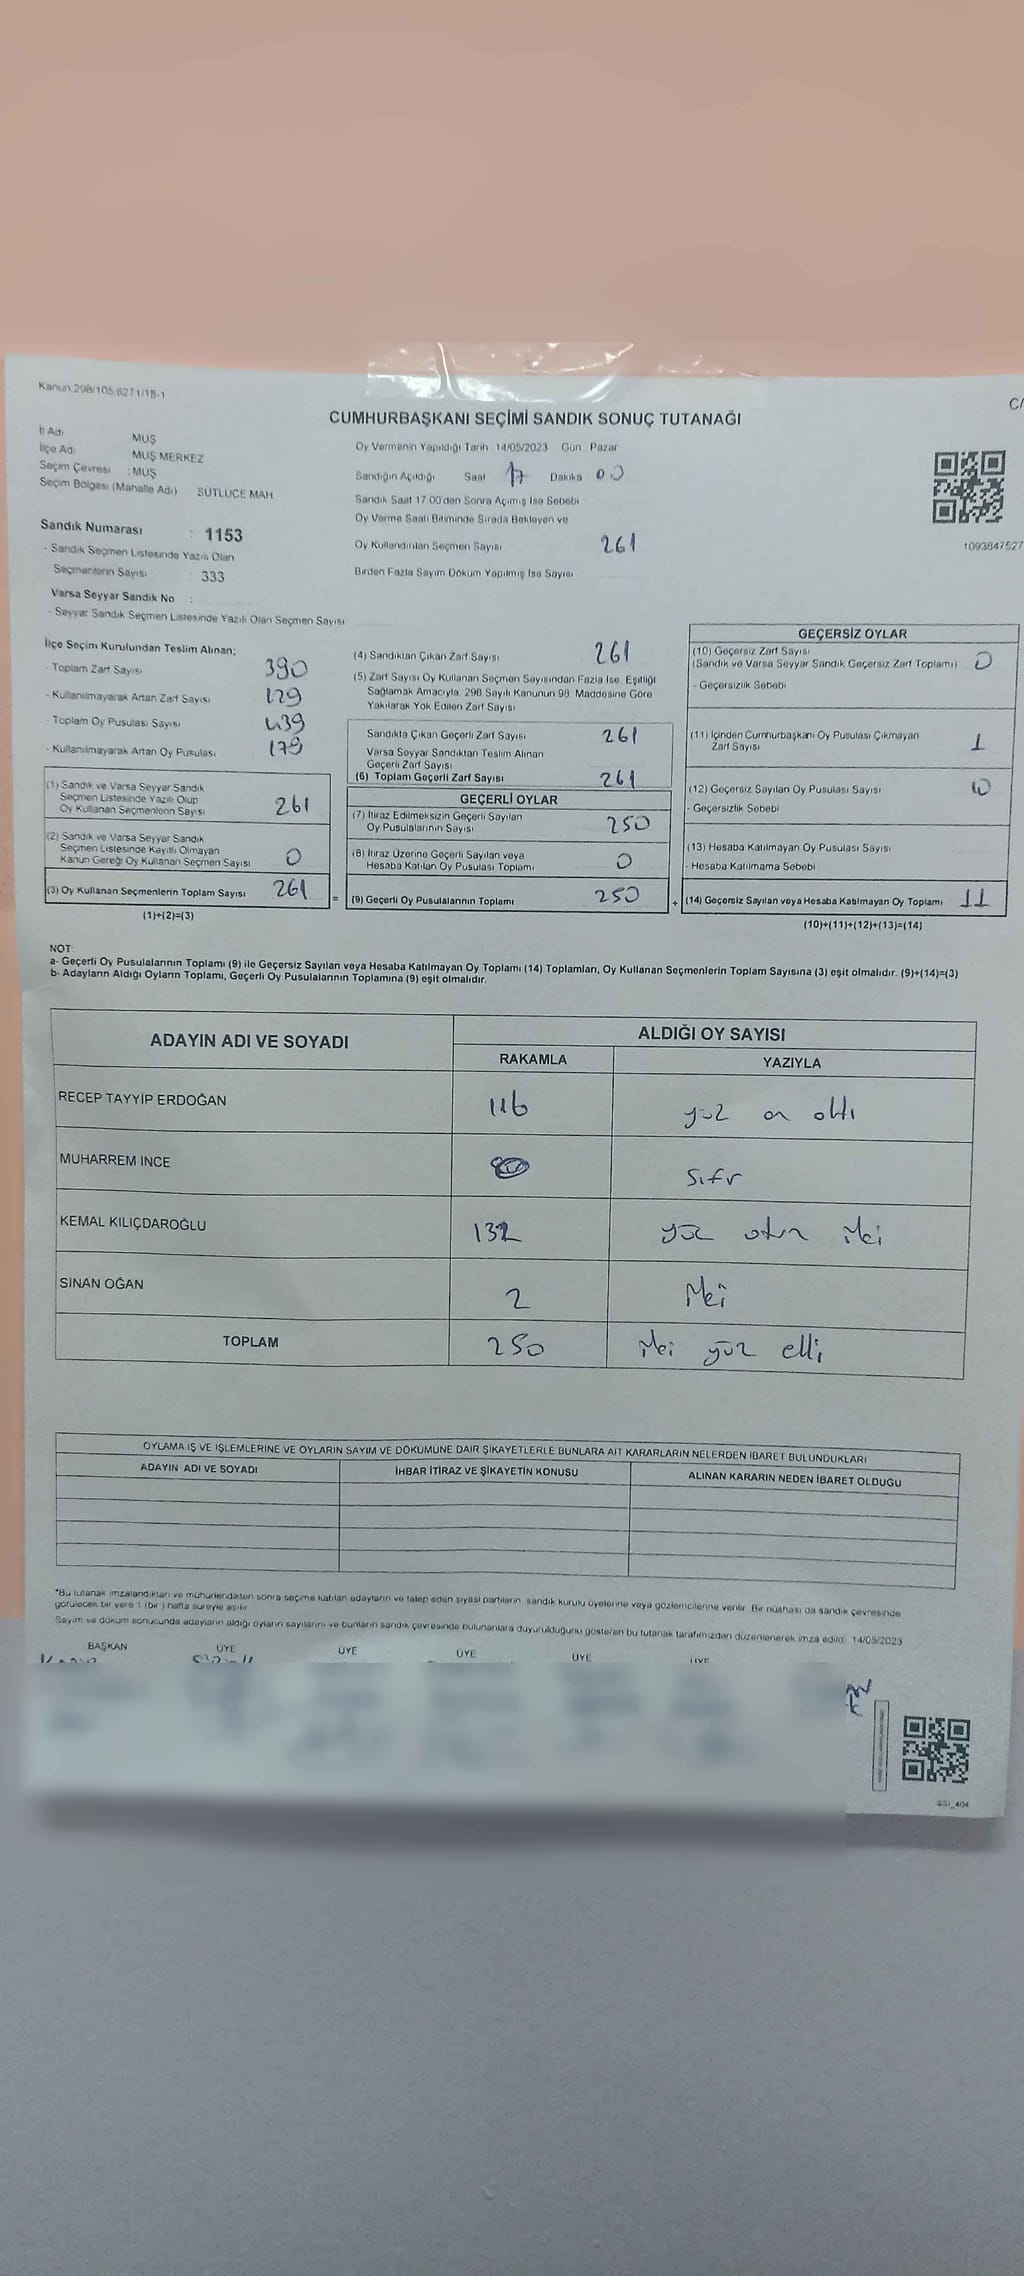 Kanun.298/105.6271/18-1
C/
CUMHURBAŞKANI SEÇİMİ SANDIK SONUÇ TUTANAĞI
İl Adı MUŞ
İlçe Adı MUŞ MERKEZ
Seçim Çevresi : MUŞ
Seçim Bölgesi (Mahalle Adı) SÜTLÜCE MAH.
Oy Vermenin Yapıldığı Tarih 14/05/2023 Gün Pazar
Sandığın Açıldığı Saat 17 Dakika 00
Sandık Saat 17.00'den Sonra Açımış İse Sebebi
Oy Verme Saati Bitiminde Sırada Bekleyen ve
Oy Kullandırılan Seçmen Sayısı 261
Birden Fazla Sayım Döküm Yapılmış İse Sayısı
1093647527
Sandık Numarası : 1153
- Sandık Seçmen Listesinde Yazılı Olan
Seçmenlerin Sayısı : 333
Varsa Seyyar Sandık No :
- Seyyar Sandık Seçmen Listesinde Yazılı Olan Seçmen Sayısı
İlçe Seçim Kurulundan Teslim Alınan;
- Toplam Zarf Sayısı 390
- Kullanılmayarak Artan Zarf Sayısı 129
- Toplam Oy Pusulası Sayısı 439
- Kullanılmayarak Artan Oy Pusulası 179
(1) Sandık ve Varsa Seyyar Sandık
Seçmen Listesinde Yazılı Olup
Oy Kullanan Seçmenlerin Sayısı 261
(2) Sandık ve Varsa Seyyar Sandık
Seçmen Listesinde Kayıtlı Olmayan
Kanun Gereği Oy Kullanan Seçmen Sayısı 0
(3) Oy Kullanan Seçmenlerin Toplam Sayısı 261
(1)+(2)=(3)
(4) Sandıktan Çıkan Zarf Sayısı 261
(5) Zarf Sayısı Oy Kullanan Seçmen Sayısından Fazla İse, Eşitliği
Sağlamak Amacıyla, 298 Sayılı Kanunun 98. Maddesine Göre
Yakılarak Yok Edilen Zarf Sayısı
Sandıkta Çıkan Geçerli Zarf Sayısı 261
Varsa Seyyar Sandıktan Teslim Alınan
Geçerli Zarf Sayısı
(6) Toplam Geçerli Zarf Sayısı 261
GEÇERLİ OYLAR
(7) İtiraz Edilmeksizin Geçerli Sayılan
Oy Pusulalarının Sayısı 250
(8) İtiraz Üzerine Geçerli Sayılan veya
Hesaba Katılan Oy Pusulası Toplamı 0
= (9) Geçerli Oy Pusulalarının Toplamı 250
GEÇERSİZ OYLAR
(10) Geçersiz Zarf Sayısı
(Sandık ve Varsa Seyyar Sandık Geçersiz Zarf Toplamı) 0
- Geçersizlik Sebebi
(11) İçinden Cumhurbaşkanı Oy Pusulası Çıkmayan
Zarf Sayısı 1
(12) Geçersiz Sayılan Oy Pusulası Sayısı 10
- Geçersizlik Sebebi
(13) Hesaba Katılmayan Oy Pusulası Sayısı
- Hesaba Katılmama Sebebi
+ (14) Geçersiz Sayılan veya Hesaba Katılmayan Oy Toplamı 11
(10)+(11)+(12)+(13)=(14)
NOT:
a- Geçerli Oy Pusulalarının Toplamı (9) ile Geçersiz Sayılan veya Hesaba Katılmayan Oy Toplamı (14) Toplamları, Oy Kullanan Seçmenlerin Toplam Sayısına (3) eşit olmalıdır. (9)+(14)=(3)
b- Adayların Aldığı Oyların Toplamı, Geçerli Oy Pusulalarının Toplamına (9) eşit olmalıdır.
ADAYIN ADI VE SOYADI ALDIĞI OY SAYISI
RAKAMLA YAZIYLA
RECEP TAYYİP ERDOĞAN 116 yüz on altı
MUHARREM İNCE sıfır
KEMAL KILIÇDAROĞLU 132 yüz otuz iki
SİNAN OĞAN 2 iki
TOPLAM 250 iki yüz elli
OYLAMA İŞ VE İŞLEMLERİNE VE OYLARIN SAYIM VE DÖKÜMÜNE DAİR ŞİKAYETLERLE BUNLARA AİT KARARLARIN NELERDEN İBARET BULUNDUKLARI
ADAYIN ADI VE SOYADI İHBAR İTİRAZ VE ŞİKAYETİN KONUSU ALINAN KARARIN NEDEN İBARET OLDUĞU
*Bu tutanak imzalandıktan ve mühürlendikten sonra seçime katılan adayların ve talep eden siyasi partilerin, sandık kurulu üyelerine veya gözlemcilerine verilir. Bir nüshası da sandık çevresinde
görülecek bir yere 1 (bir ) hafta süreyle asılır.
Sayım ve döküm sonucunda adayların aldığı oyların sayılarını ve bunların sandık çevresinde bulunanlara duyurulduğunu gösteren bu tutanak tarafımızdan düzenlenerek imza edildi. 14/05/2023
BAŞKAN ÜYE ÜYE ÜYE ÜYE ÜYE